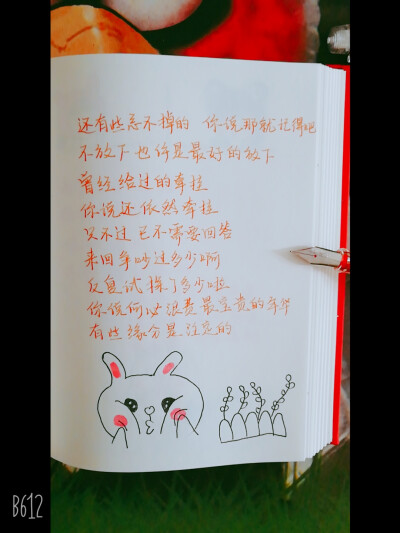 还有些忘不掉的 你说那就记得吧
不放下也许是最好的放下
曾经给过的牵挂
你说还依然牵挂
只不过 已不需要回答
来回争吵过多少啊
反复试了多少啦
你说何必浪费最宝贵的年华
有些缘分是注定的
B612